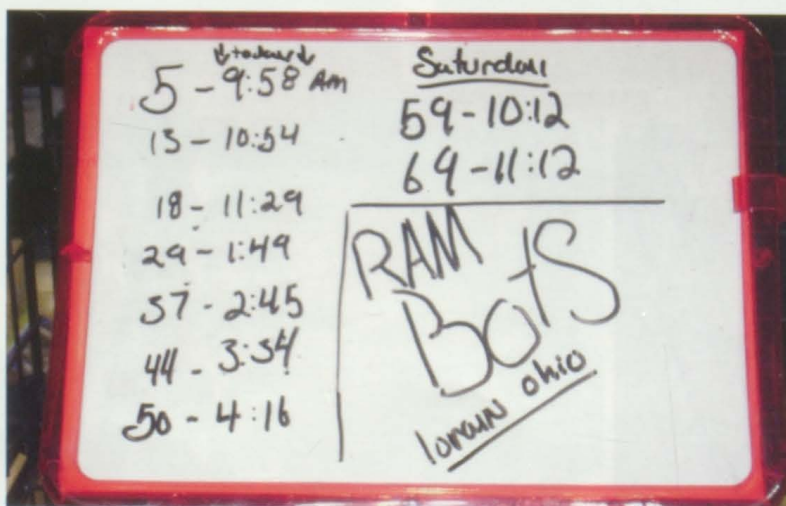 ↓today↓
5 - 9:58 AM
15 - 10:54
18 - 11:29
29 - 1:49
37 - 2:45
44 - 3:54
50 - 4:16
Saturday
59 - 10:12
69 - 11:12
RAM
BotS
lorain ohio